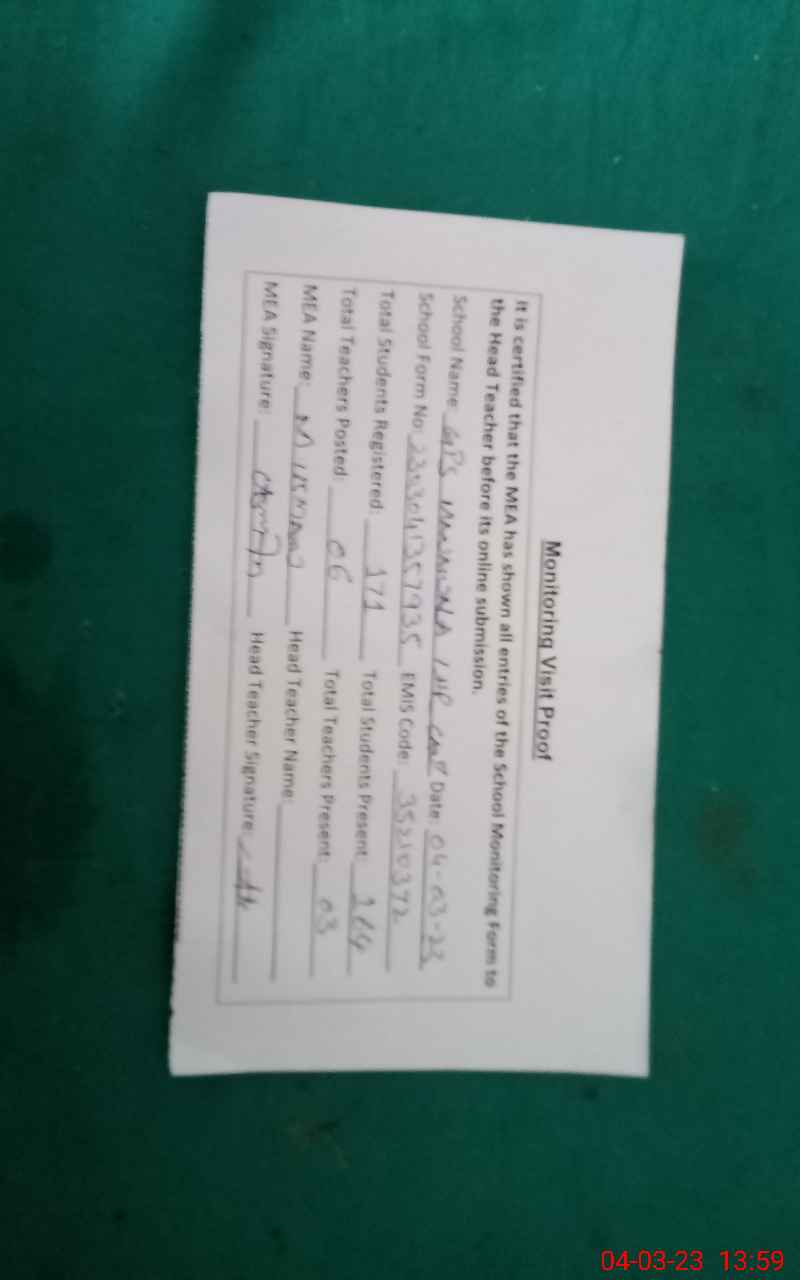 Monitoring Visit Proof
It is certified that the MEA has shown all entries of the School Monitoring Form to
the Head Teacher before its online submission.
School Name: GPS Date: 04-03-23
School Form No: 2303041357935 EMIS Code: 35210372
Total Students Registered: 171 Total Students Present:
Total Teachers Posted: 06 Total Teachers Present: 03
MEA Name: M USMAN Head Teacher Name:
MEA Signature: Head Teacher Signature:
04-03-23 13:59